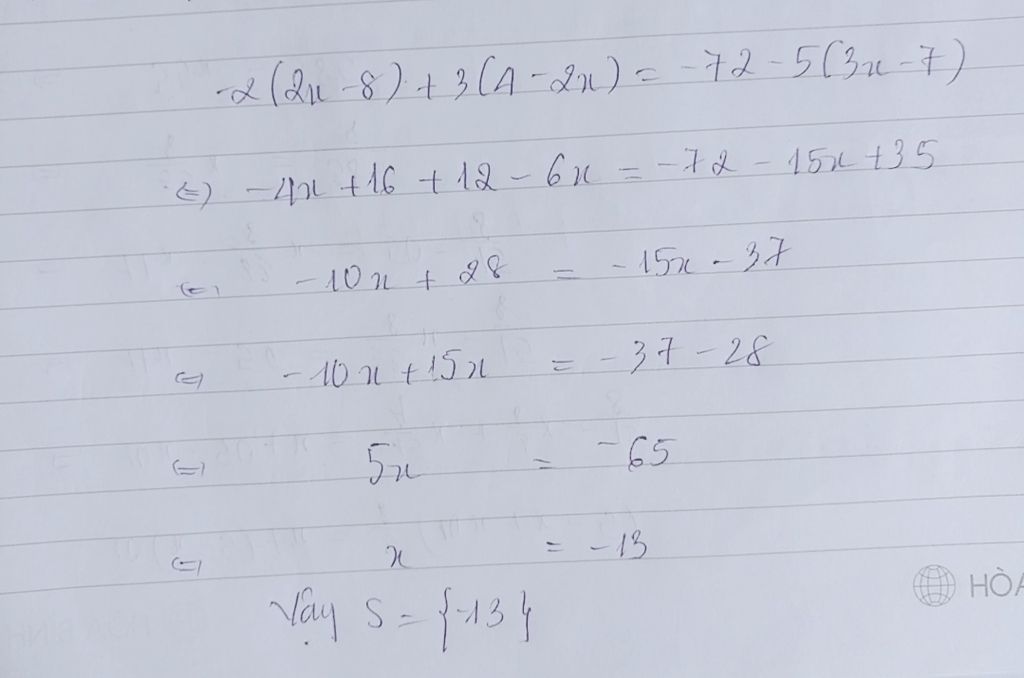 -2(2x - 8) + 3(4 - 2x) = -72 - 5(3x - 7)
⇔ -4x + 16 + 12 - 6x = -72 - 15x + 35
⇔ -10x + 28 = -15x - 37
⇔ -10x + 15x = -37 - 28
⇔ 5x = -65
⇔ x = -13
Vậy S = {-13}
HÒA